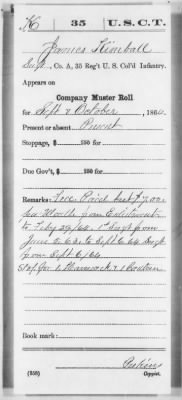 K | 35 | U.S.C.T.
James Kimball
Sergt., Co. A, 35 Reg't U. S. Col'd Infantry.
Appears on
Company Muster Roll
for Sept & October, 1864.
Present or absent Present
Stoppage, $ 100 for
Due Gov't, $ 100 for
Remarks: Paid but $7.00
per Month from Enlistment
to Feby 29/64. 1st Sergt from
June 63 to Sept 6 64 Sergt
from Sept 6/64
Stop for 1 Haversack & 1 Canteen
Book mark:
(358)
Perkins
Copyist.